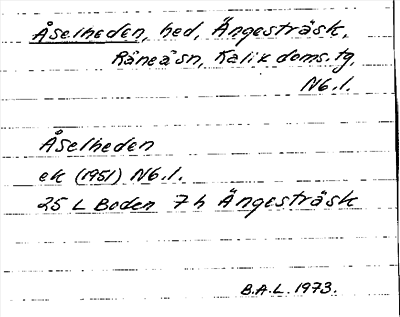 Åselheden, hed, Ängesträsk,
Råneå sn, Kalix doms. tg,
Nb. l.
Åselheden
ek (1951) Nb. l.
25 L Boden 7 h Ängesträsk
B.A.L. 1973.